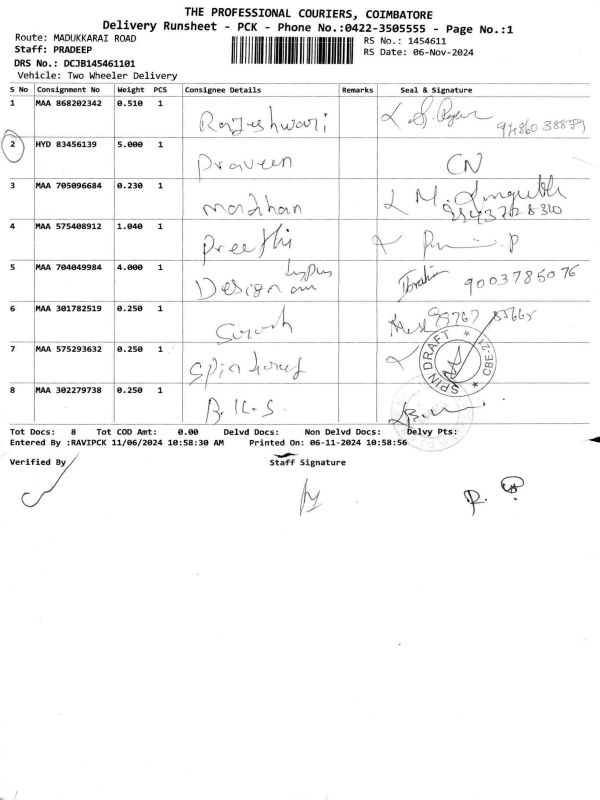 THE PROFESSIONAL COURIERS, COIMBATORE
Delivery Runsheet - PCK - Phone No.:0422-3505555 - Page No.:1
Route: MADUKKARAI ROAD
RS No.: 1454611
Staff: PRADEEP
RS Date: 06-Nov-2024
DRS No.: DCJB145461101
Vehicle: Two Wheeler Delivery
S No Consignment No Weight PCS Consignee Details Remarks Seal & Signature
1 MAA 868202342 0.510 1 Rajeshwari
2 HYD 83456139 5.000 1 Praveen CN
3 MAA 705096684 0.230 1 Madhan M.
4 MAA 575408912 1.040 1 Preethi P
5 MAA 704049984 4.000 1 Design Ibrahim 9003785076
6 MAA 301782519 0.250 1
7 MAA 575293632 0.250 1 Spin SPIN DRAFT * CBE-21 *
8 MAA 302279738 0.250 1 B.K.S.
Tot Docs: 8 Tot COD Amt: 0.00 Delvd Docs: Non Delvd Docs: Delvy Pts:
Entered By :RAVIPCK 11/06/2024 10:58:30 AM Printed On: 06-11-2024 10:58:56
Verified By Staff Signature